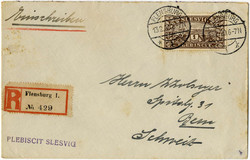 Einschreiben
FLENSBURG
SLESVIG
R
Flensburg 1.
No 429
Herrn
Spitalg. 31
Bern
Schweiz
PLEBISCIT SLESVIG